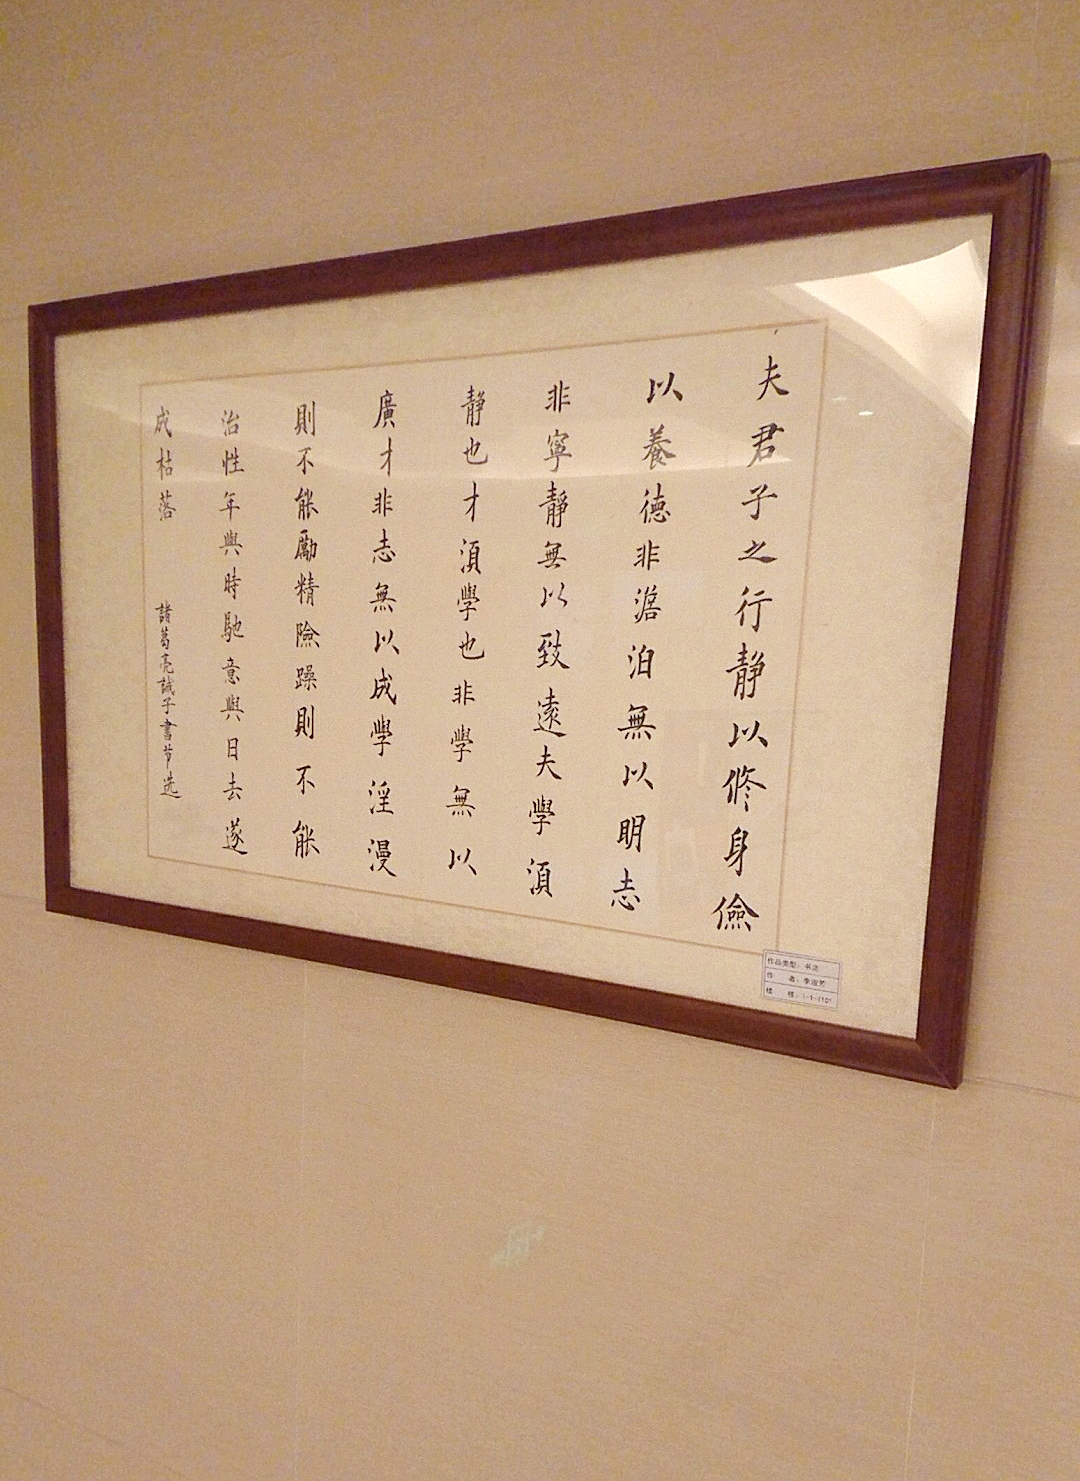 夫君子之行靜以修身儉
以養德非澹泊無以明志
非寧靜無以致遠夫學須
靜也才須學也非學無以
廣才非志無以成學淫漫
則不能勵精險躁則不能
治性年與時馳意與日去遂
成枯落
諸葛亮誡子書节选
作品类型：书法
作 者：李淑芳